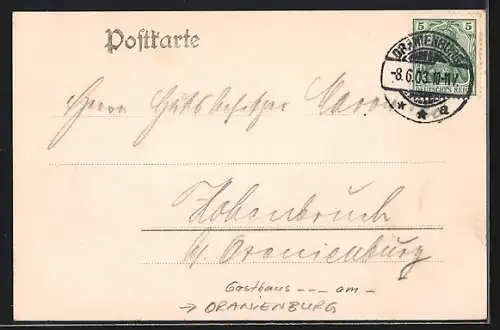 Postkarte
5 5
ORANIENBURG
-8.6.03.10-11V
* * a
Herrn Gutsbesitzer
Hohenbruch
b/ Oranienburg
Gasthaus --- am -
→ ORANIENBURG